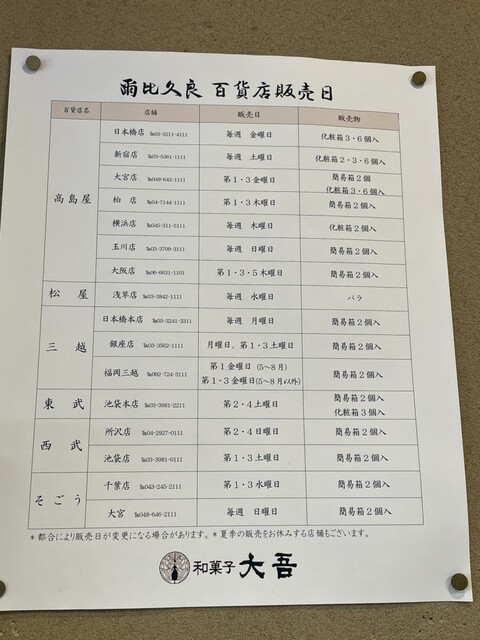 爾比久良 百貨店販売日
百貨店名 店舗 販売日 販売物
高島屋 日本橋店 ℡03-3211-4111 毎週 金曜日 化粧箱3・6個入
新宿店 ℡03-5361-1111 毎週 土曜日 化粧箱2・3・6個入
大宮店 ℡048-643-1111 第1・3金曜日 簡易箱2個
化粧箱3・6個入
柏 店 ℡04-7144-1111 第1・3木曜日 簡易箱2個入
横浜店 ℡045-311-5111 毎週 木曜日 化粧箱2個入
玉川店 ℡03-3709-3111 毎週 日曜日 簡易箱2個入
大阪店 ℡06-6631-1101 第1・3・5木曜日 簡易箱2個入
松屋 浅草店 ℡03-3842-1111 毎週 水曜日 バラ
三越 日本橋本店 ℡03-3241-3311 毎週 月曜日 簡易箱2個入
銀座店 ℡03-3562-1111 月曜日、第1・3土曜日 簡易箱2個入
福岡三越 ℡092-724-3111 第1金曜日 (5~8月) 簡易箱2個入
第1・3金曜日(5~8月以外)
東武 池袋本店 ℡03-3981-2211 第2・4土曜日 簡易箱2個入
化粧箱3個入
西武 所沢店 ℡04-2927-0111 第2・4日曜日 簡易箱2個入
池袋店 ℡03-3981-0111 第1・3土曜日 簡易箱2個入
そごう 千葉店 ℡043-245-2111 第1・3水曜日 簡易箱2個入
大宮 ℡048-646-2111 毎週 日曜日 簡易箱2個入
*都合により販売日が変更になる場合があります。*夏季の販売をお休みする店舗もございます。
和菓子 大吾